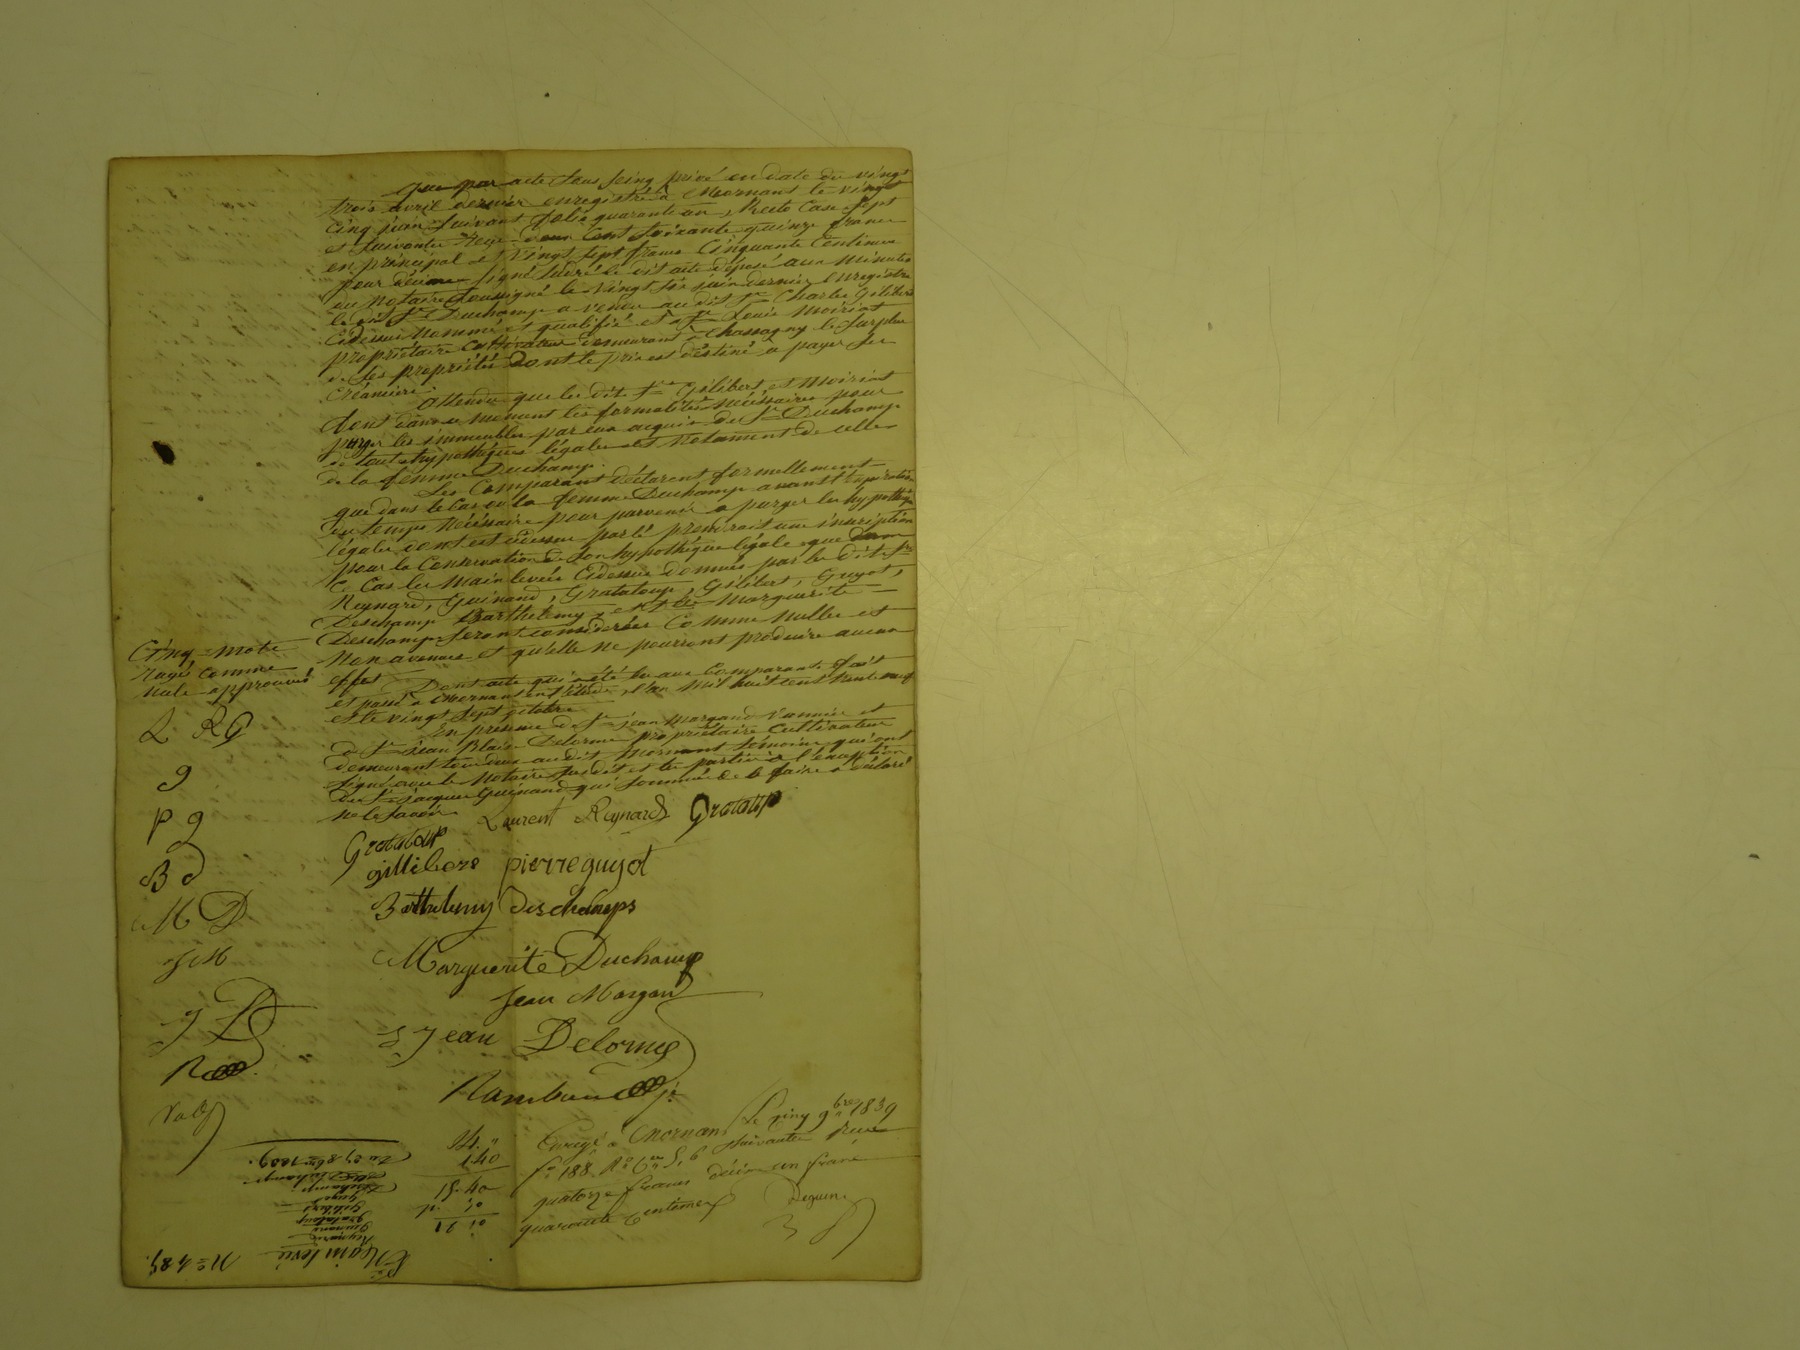 que par acte sous seing privé en date du vingt
trois avril dernier enregistré à Mornant le vingt
cinq juin suivant folio quarante un, Recto Case sept
et suivantes Reçu deux Cent soixante quinze francs
en principal et vingt sept francs Cinquante Centimes
pour décime signé le dit acte déposé aux minutes
du Notaire soussigné le vingt six juin dernier enregistré
le dit Sr Duchamp a vendu au dit Sr Charles Gilibert
Cidessus nommé et qualifié et à Sr Louis Moiriat
propriétaire Cultivateur demeurant à Chassagny le surplus
de ses propriétés dont le prix est destiné à payer ses
Créanciers
Attendu que les dits Srs Gilibert et Moiriat
font dans ce moment les formalités nécéssaires pour
purger les immeubles par eux acquis du Sr Duchamp
de tout hypothéques légales et notament de celles
de la femme Duchamp.
Les Comparant déclarent formellement
que dans le Cas ou la femme Duchamp avant l'expiration
du temps nécéssaire pour parvenir a purger les hypothéques
légales dont est cidessus parlé prendrait une inscription
pour la Conservation de son hypothéque légale que dans
Ce Cas les main levées Cidessus données par les dits Srs
Reynard, Guinand, Grataloup, Gilibert, Guyot,
Deschamp Barthélemy et Marguerite
Deschamps seront considérées Comme nulles et
Non avenues et qu'elle ne pourront produire aucun
effet. Dont acte qui a été lu aux Comparants fait
et passé a Mornant en l'étude, l'an mil huit cent trente neuf
et le vingt sept octobre
En présence de Sr jean Margand Vannier et
de Sr jean Blaise Delorme propriétaire Cultivateur
demeurant tous deux au dit Mornant témoins qui ont
signé avec le Notaire susdit et les parties à l'éxception
du Sr jacques Guinand qui sommé de le faire a déclaré
ne le savoir
Cinq mots
rayés comme
nuls approuvés
L R G
g
P g
B d
M D
J M
J D
R
Laurent Reynard Gratalup
Grataloup
gillibere pierre guyot
Barthelemy deschamps
Marguerite Duchamp
Jean Margand
J Jean Delorme
Rambaud
14."
1.40
15.40
10
Enregé à Mornant le cinq 9bre 1839
fo 188 Ro Ces 5, 6 suivantes Reçu
quatorze francs décime un franc
quarante Centimes
No 484.
Main levée
Reynard
Guinand
Grataloup
Gilibert
Guyot
Deschamp
Du 27 8bre 1839.